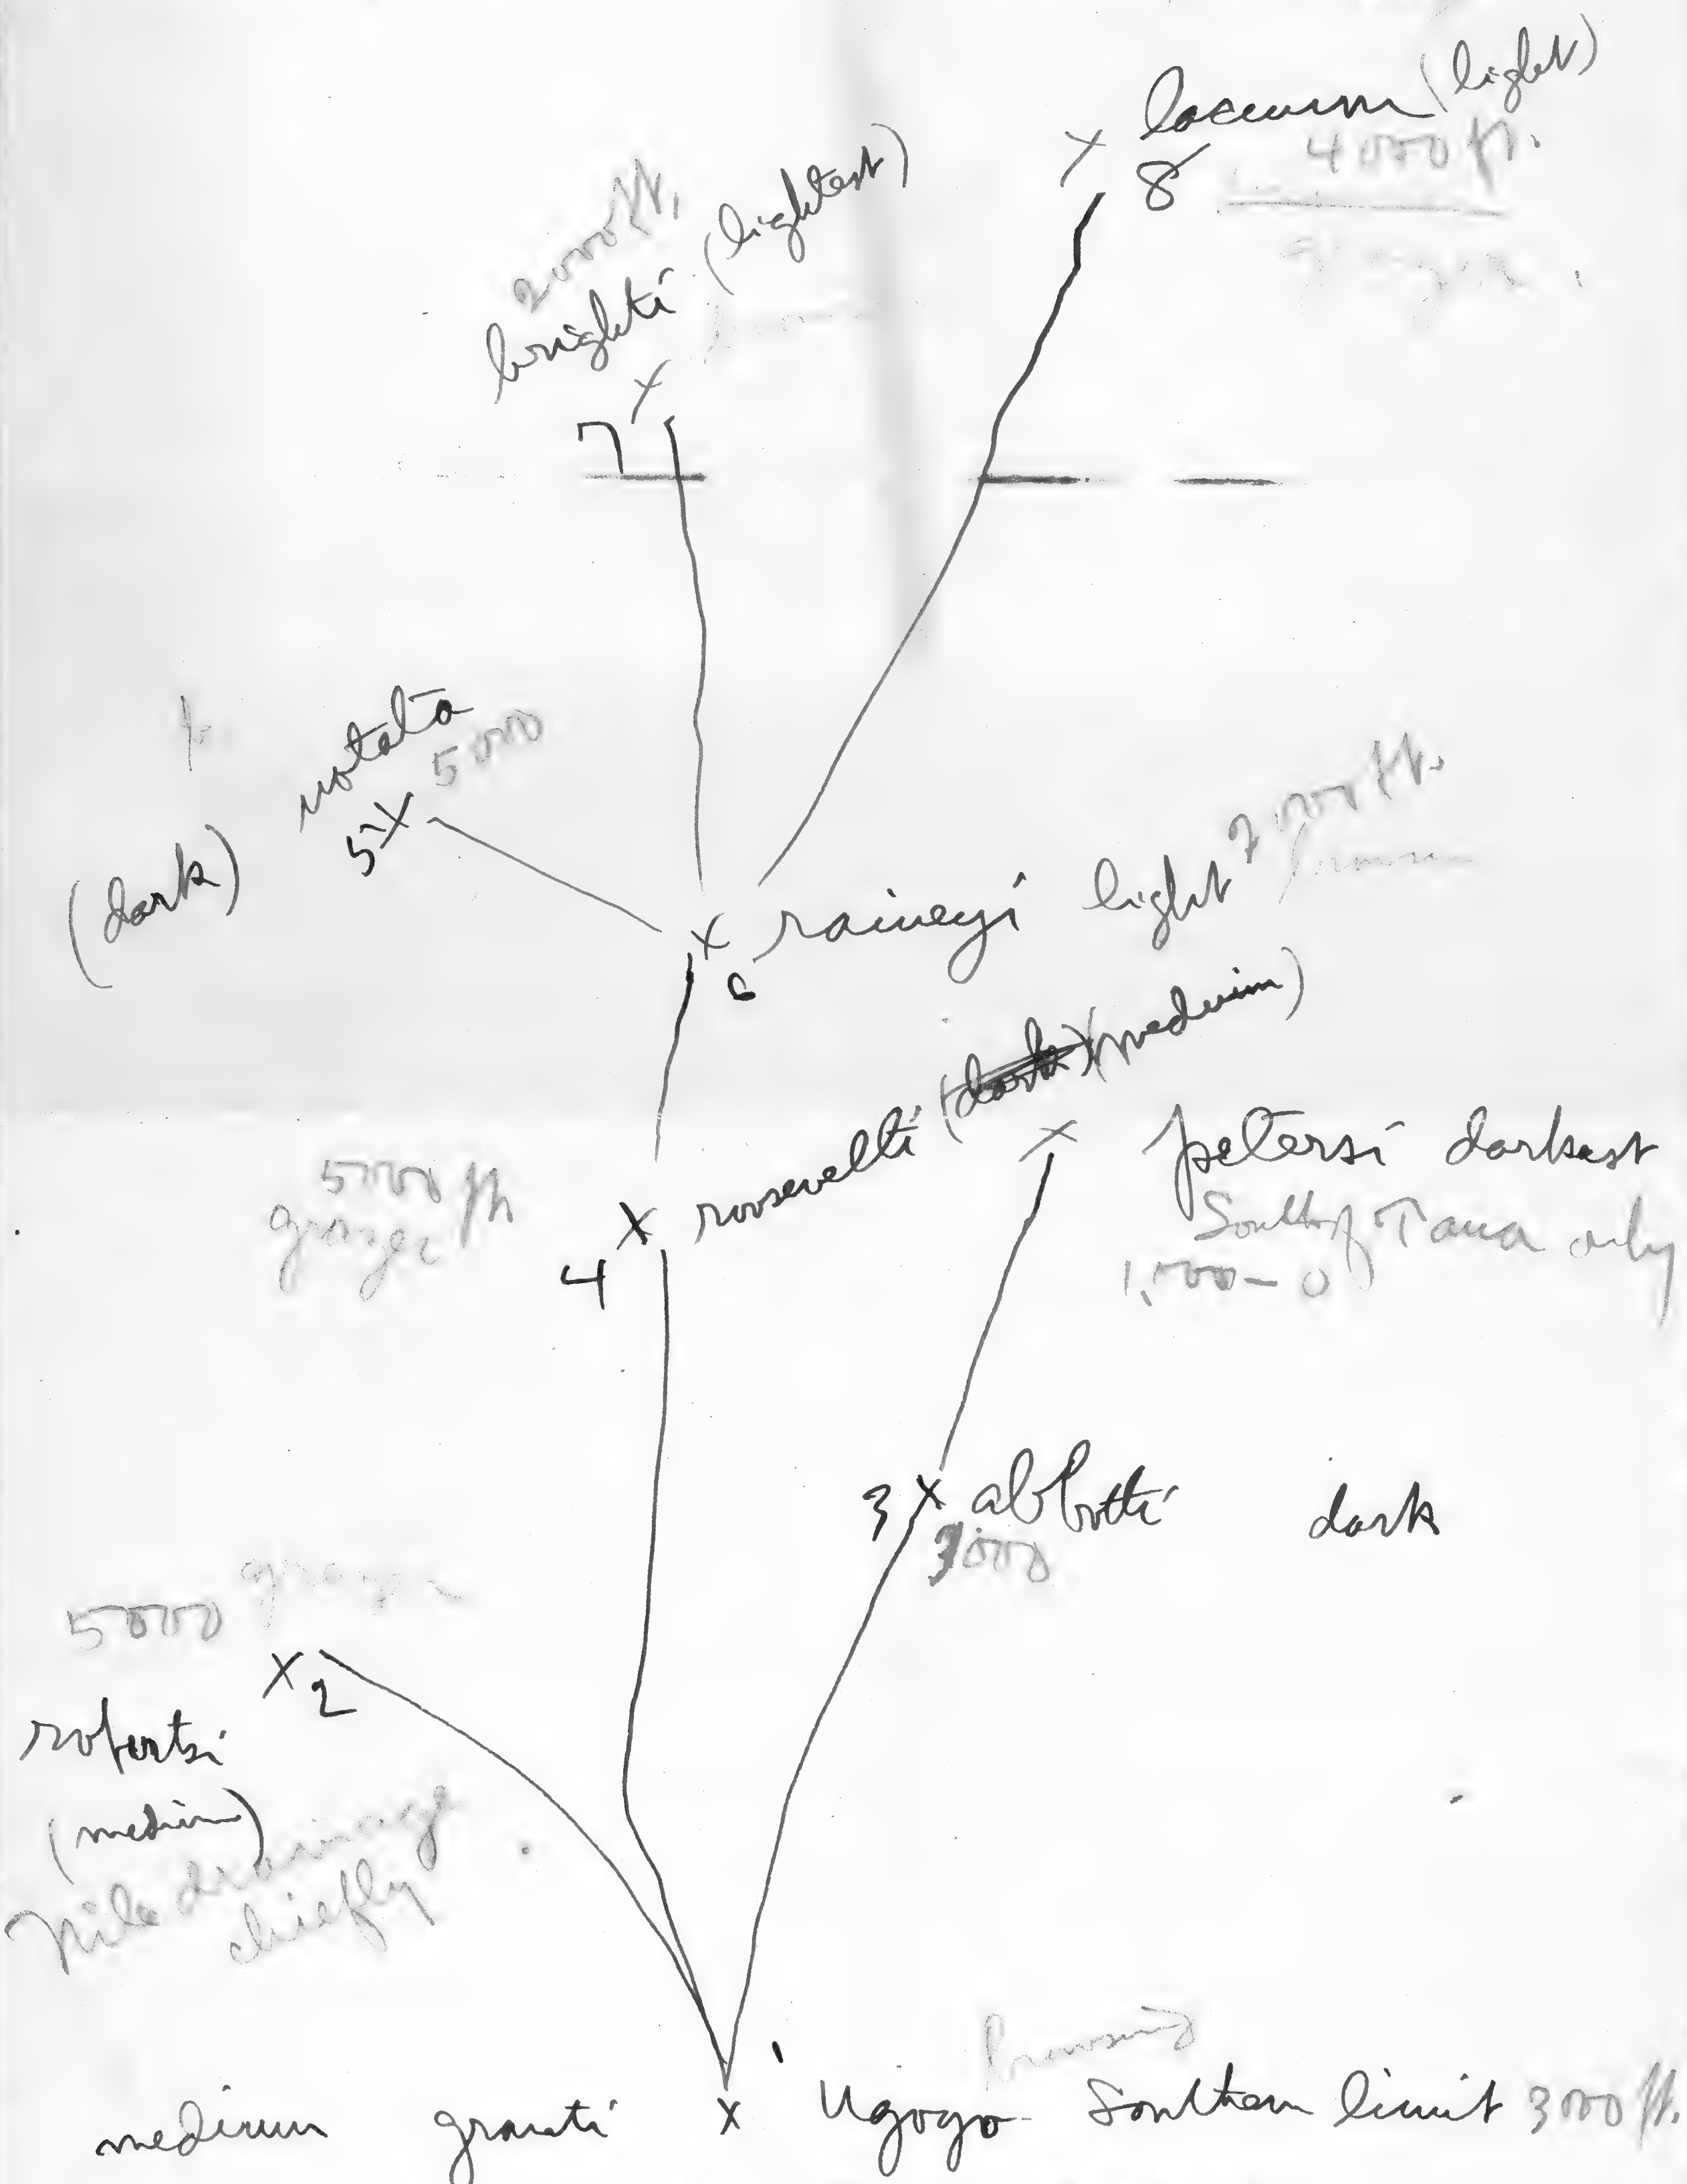 lacuum (light)
8
4000 ft.
2000 ft.
brighti (lightest)
7
notata
5000
5
(dark)
raineyi light 2000 ft.
6
roosevelti (dark) (medium)
5000 ft
grazer
4
petersi darkest
South of Tana only
1,000-0
3 abbotti dark
3000
5000 grazer
2
robertsi
(medium)
Nile drainage
chiefly
1
browsing
medium granti x Ugogo - Southern limit 3000 ft.